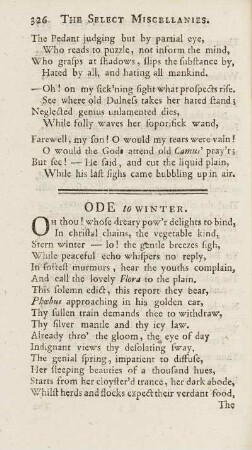 326 THE SELECT MISCELLANIES.
The Pedant judging but by partial eye,
Who reads to puzzle, not inform the mind,
Who grasps at shadows, slips the substance by,
Hated by all, and hating all mankind.
—Oh! on my sick'ning sight what prospects rise.
See where old Dulness takes her hated stand;
Neglected genius unlamented dies,
While folly waves her soporific wand,
Farewell, my son! O would my tears were vain!
O would the Gods attend old Camus' pray'r;
But see! — He said, and cut the liquid plain,
While his last sighs came bubbling up in air.
ODE to WINTER.
OH thou! whose dreary pow'r delights to bind,
In christal chains, the vegetable kind,
Stern winter — lo! the gentle breezes sigh,
While peaceful echo whispers no reply,
In softest murmurs, hear the youths complain,
And call the lovely Flora to the plain.
This solemn edict, this report they bear,
Phœbus approaching in his golden car,
Thy sullen train demands thee to withdraw,
Thy silver mantle and thy icy law.
Already thro' the gloom, the eye of day
Indignant views thy desolating sway,
The genial spring, impatient to diffuse,
Her sleeping beauties of a thousand hues,
Starts from her cloyster'd trance, her dark abode,
Whilst herds and flocks expect their verdant food,
The